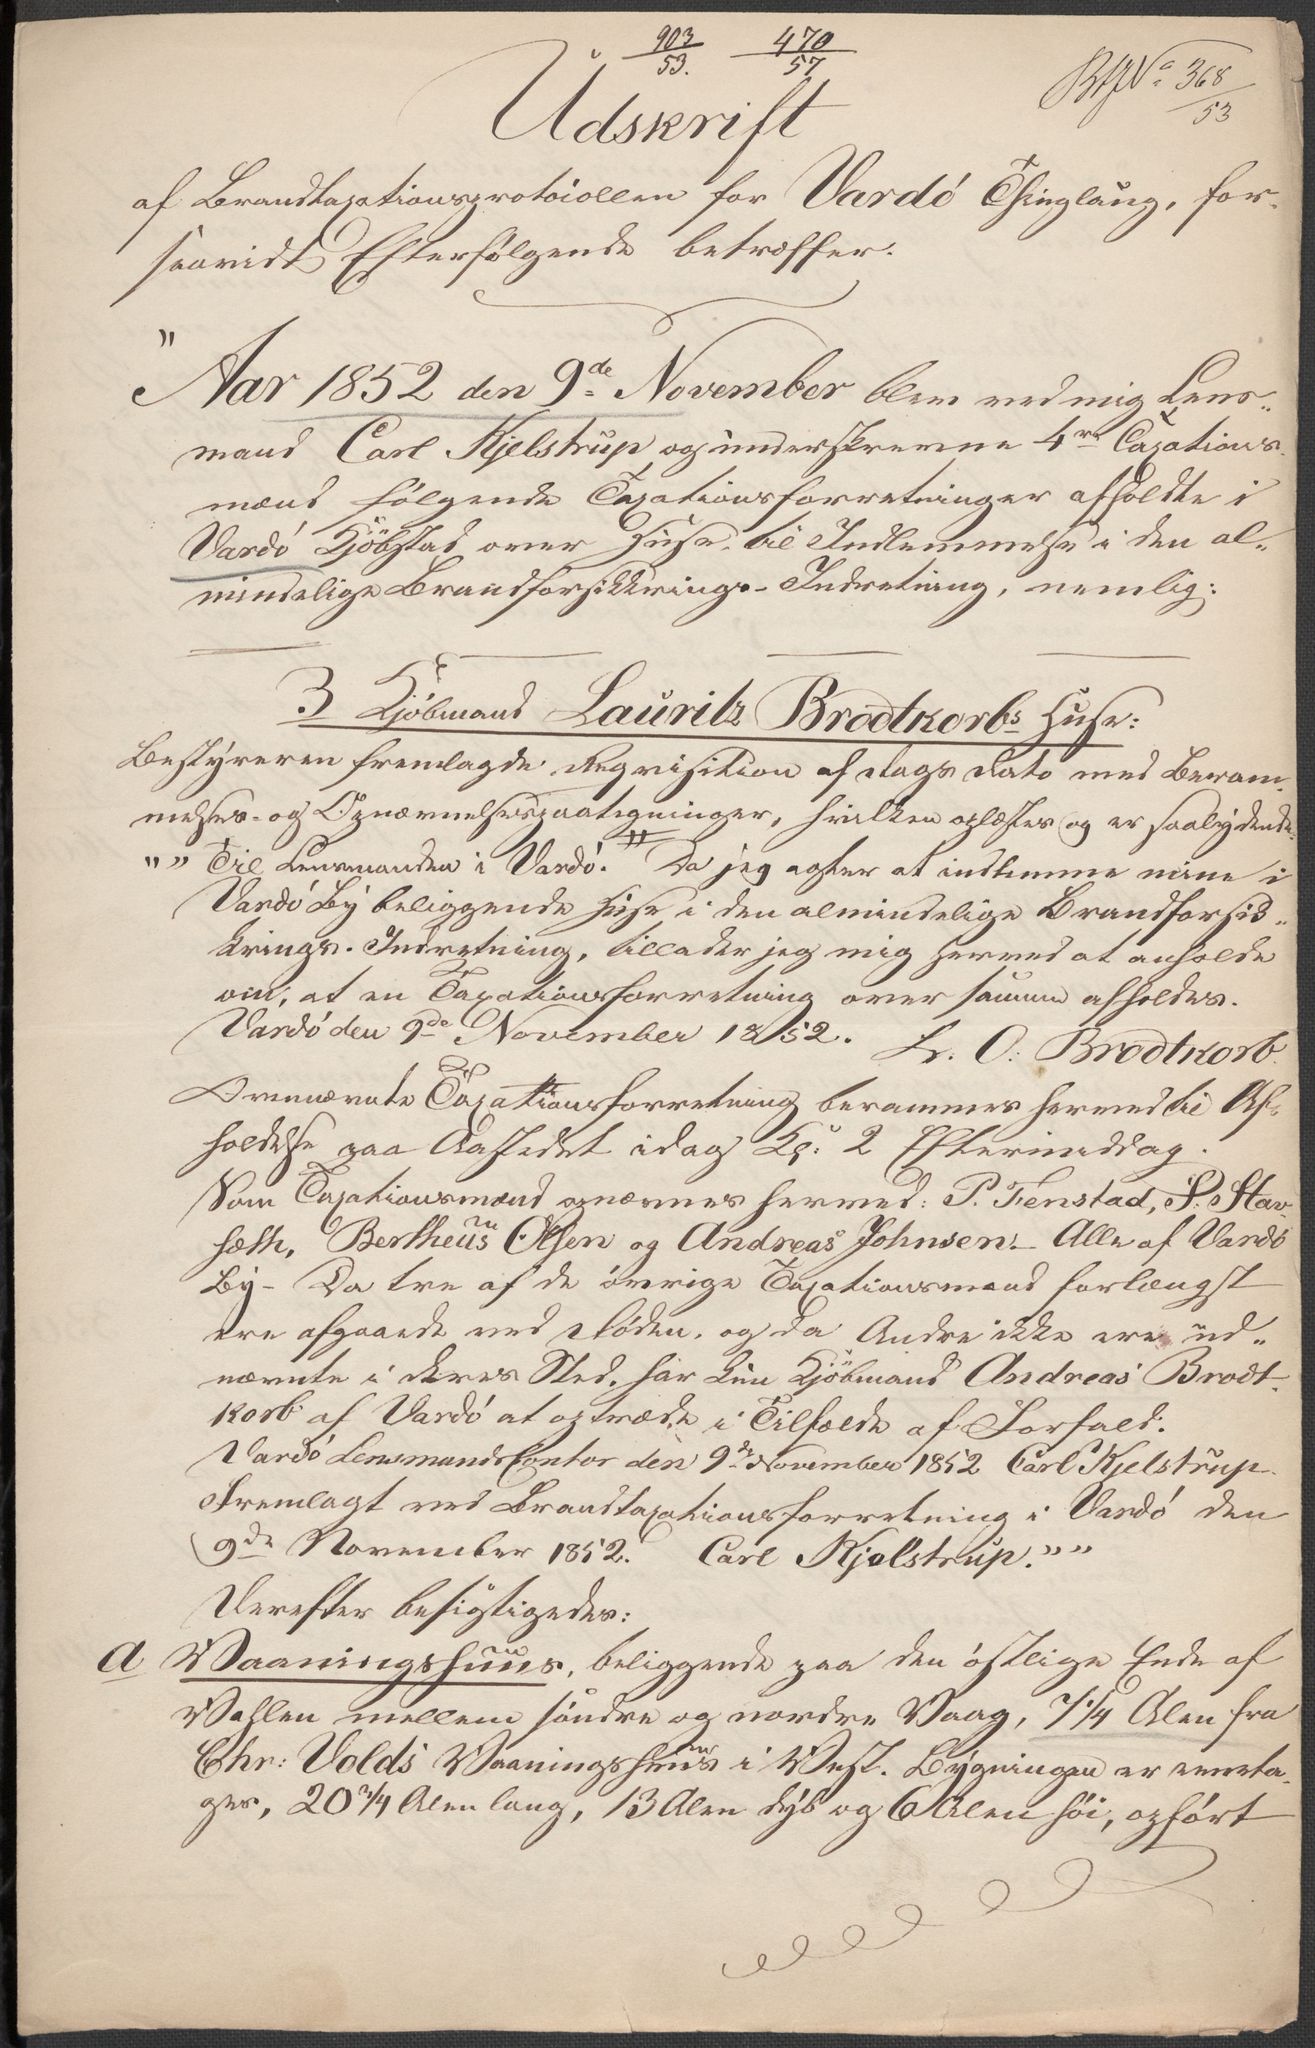 903/53. 470/57
BfNo 368/53
Udskrift
af Brandtaxationsprotocollen for Vardö Thinglaug, for-
saavidt Efterfølgende betræffer.
" Aar 1852 den 9de November blev ved mig Lens-
mand Carl Kjelstrup og underskrevne 4re Taxations-
mænd følgende Taxationsforretninger afholdte i
Vardö Kjöbstad over Huse til Indlemmelse i den al-
mindelige Brandforsikkrings-Indretning, nemlig:
3 Kjöbmand Lauritz Brodtkorbs Huse:
Bestyreren fremlagde Reqvisition af Dags Dato med Beram-
melses- og Opnævnelsespaategninger, hvilken oplæstes og er saalydende
"" Til Lensmanden i Vardö. " Da jeg agter at indlemme mine i
Vardö By beliggende Huse i den almindelige Brandforsik-
krings-Indretning, tillader jeg mig herved at anholde
om, at en Taxationsforretning over samme afholdes.
Vardö den 9de November 1852. L. O: Brodtkorb.
Ovennævnte Taxationsforretning berammes herved til Af-
holdelse paa Aastedet idag Kl: 2 Eftermiddag.
Som Taxationsmænd opnævnes herved: P. Fenstad, P. Stav-
sæth, Bertheus Olsen og Andreas Johnsen - Alle af Vardö
By - Da tre af de övrige Taxationsmænd forlængst
ere afgaaede ved Döden, og da Andre ikke ere ud-
nævnte i deres Sted, har kun Kjöbmand Andreas Brodt-
korb af Vardö at optræde i Tilfælde af Forfald.
Vardö Lensmandscontor den 9de November 1852 Carl Kjelstrup.
Fremlagt ved Brandtaxationsforretning i Vardö den
9de November 1852. Carl Kjelstrup.""
Derefter besigtigedes:
a Vaaningshuus, beliggende paa den östlige Ende af
Valen mellem söndre og nordre Vaag, 7 1/4 Alen fra
Chr: Volds Vaaningshuus i Vest. Bygningen er eneeta-
ges, 20 3/4 Alen lang, 13 Alen dyb og 6 Alen höi, opfört